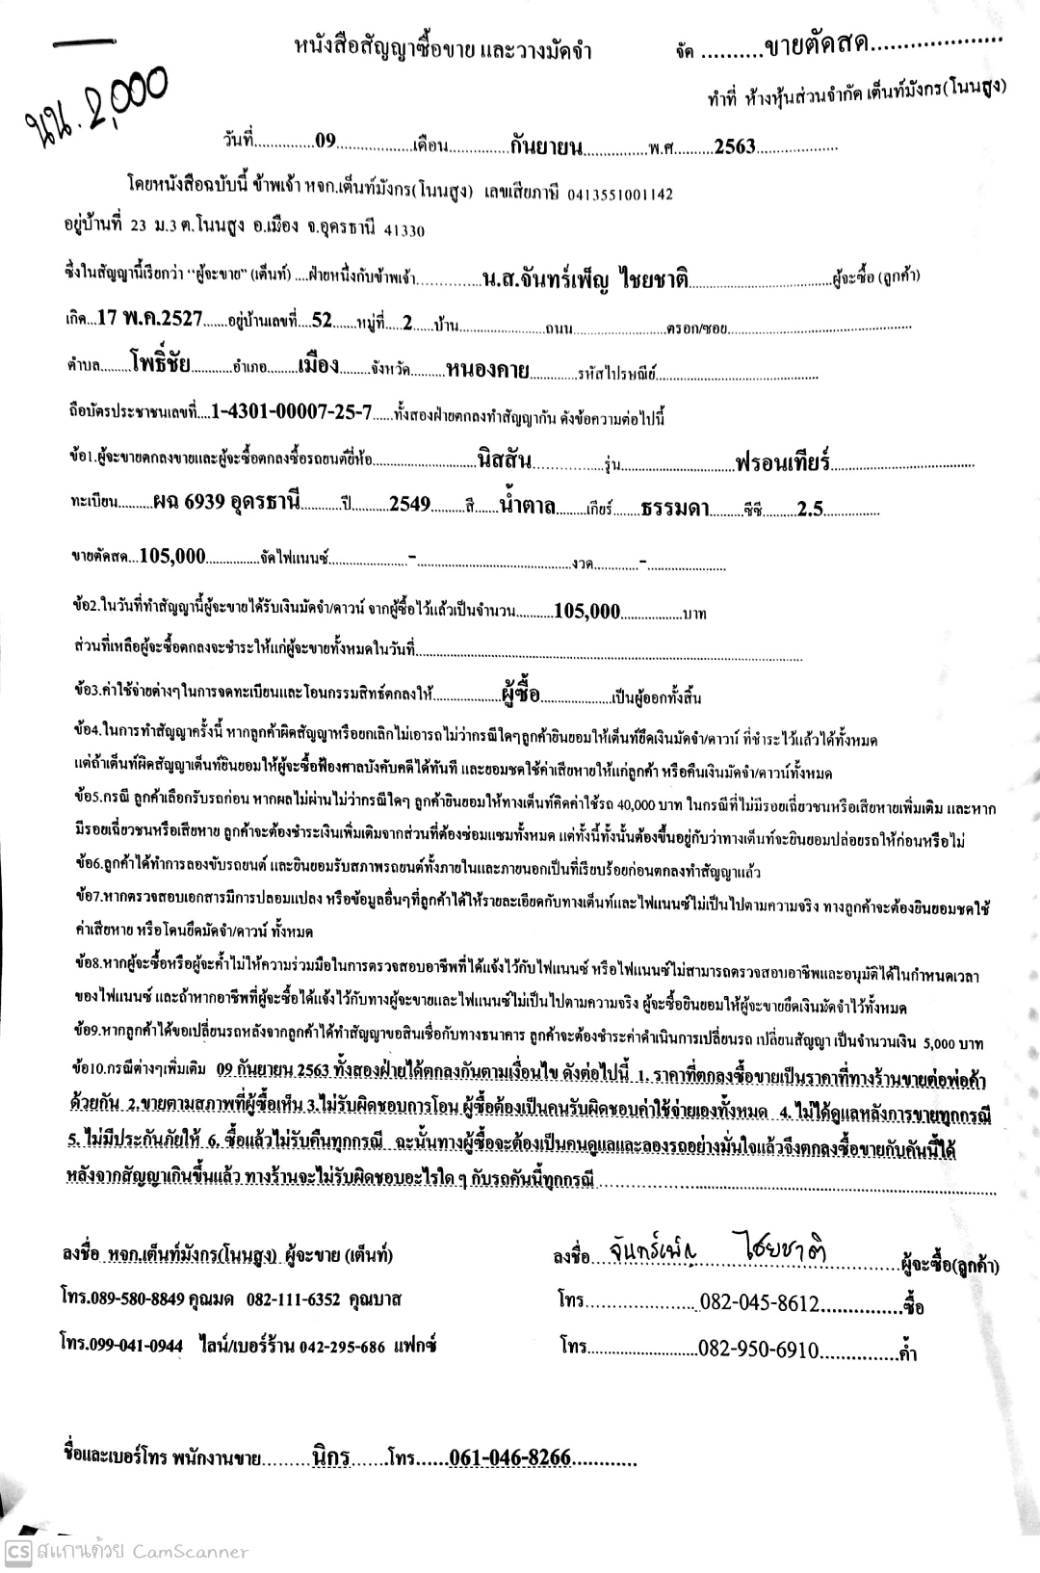 หนังสือสัญญาซื้อขาย และวางมัดจำ
จัด ..........ขายตัดสด....................
นน. 2,000
ทำที่ ห้างหุ้นส่วนจำกัด เต็นท์มังกร(โนนสูง)
วันที่..............09.................เดือน.............กันยายน..............พ.ศ.........2563..................
โดยหนังสือฉบับนี้ ข้าพเจ้า หจก.เต็นท์มังกร(โนนสูง) เลขเสียภาษี 0413551001142
อยู่บ้านที่ 23 ม.3 ต.โนนสูง อ.เมือง จ.อุดรธานี 41330
ซึ่งในสัญญานี้เรียกว่า "ผู้จะขาย" (เต็นท์) ....ฝ่ายหนึ่งกับข้าพเจ้า...............น.ส.จันทร์เพ็ญ ไชยชาติ................................ผู้จะซื้อ (ลูกค้า)
เกิด...17 พ.ค.2527.......อยู่บ้านเลขที่....52......หมู่ที่....2.....บ้าน........................ถนน..........................ตรอก/ซอย............................................
ตำบล........โพธิ์ชัย............อำเภอ........เมือง........จังหวัด.........หนองคาย............รหัสไปรษณีย์......................................
ถือบัตรประชาชนเลขที่....1-4301-00007-25-7......ทั้งสองฝ่ายตกลงทำสัญญากัน ดังข้อความต่อไปนี้
ข้อ1.ผู้จะขายตกลงขายและผู้จะซื้อตกลงซื้อรถยนต์ยี่ห้อ........................นิสสัน.................รุ่น...........................ฟรอนเทียร์.................................
ทะเบียน.........ผฉ 6939 อุดรธานี..........ปี.........2549.........สี......น้ำตาล........เกียร์.......ธรรมดา.........ซีซี.........2.5..............
ขายตัดสด...105,000..............จัดไฟแนนซ์...................-.....................................งวด...........-...................
ข้อ2.ในวันที่ทำสัญญานี้ผู้จะขายได้รับเงินมัดจำ/ดาวน์ จากผู้ซื้อไว้แล้วเป็นจำนวน..........105,000................บาท
ส่วนที่เหลือผู้จะซื้อตกลงจะชำระให้แก่ผู้จะขายทั้งหมดในวันที่...........................................................................................
ข้อ3.ค่าใช้จ่ายต่างๆในการจดทะเบียนและโอนกรรมสิทธิ์ตกลงให้..................ผู้ซื้อ...................เป็นผู้ออกทั้งสิ้น
ข้อ4.ในการทำสัญญาครั้งนี้ หากลูกค้าผิดสัญญาหรือยกเลิกไม่เอารถไม่ว่ากรณีใดๆลูกค้ายินยอมให้เต็นท์ยึดเงินมัดจำ/ดาวน์ ที่ชำระไว้แล้วได้ทั้งหมด
แต่ถ้าเต็นท์ผิดสัญญาเต็นท์ยินยอมให้ผู้จะซื้อฟ้องศาลบังคับคดีได้ทันที และยอมชดใช้ค่าเสียหายให้แก่ลูกค้า หรือคืนเงินมัดจำ/ดาวน์ทั้งหมด
ข้อ5.กรณี ลูกค้าเลือกรับรถก่อน หากผลไม่ผ่านไม่ว่ากรณีใดๆ ลูกค้ายินยอมให้ทางเต็นท์คิดค่าใช้รถ 40,000 บาท ในกรณีที่ไม่มีรอยเฉี่ยวชนหรือเสียหายเพิ่มเติม และหาก
มีรอยเฉี่ยวชนหรือเสียหาย ลูกค้าจะต้องชำระเงินเพิ่มเติมจากส่วนที่ต้องซ่อมแซมทั้งหมด แต่ทั้งนี้ทั้งนั้นต้องขึ้นอยู่กับว่าทางเต็นท์จะยินยอมปล่อยรถให้ก่อนหรือไม่
ข้อ6.ลูกค้าได้ทำการลองขับรถยนต์ และยินยอมรับสภาพรถยนต์ทั้งภายในและภายนอกเป็นที่เรียบร้อยก่อนตกลงทำสัญญาแล้ว
ข้อ7.หากตรวจสอบเอกสารมีการปลอมแปลง หรือข้อมูลอื่นๆที่ลูกค้าได้ให้รายละเอียดกับทางเต็นท์และไฟแนนซ์ไม่เป็นไปตามความจริง ทางลูกค้าจะต้องยินยอมชดใช้
ค่าเสียหาย หรือโดนยึดมัดจำ/ดาวน์ ทั้งหมด
ข้อ8.หากผู้จะซื้อหรือผู้จะค้ำไม่ให้ความร่วมมือในการตรวจสอบอาชีพที่ได้แจ้งไว้กับไฟแนนซ์ หรือไฟแนนซ์ไม่สามารถตรวจสอบอาชีพและอนุมัติได้ในกำหนดเวลา
ของไฟแนนซ์ และถ้าหากอาชีพที่ผู้จะซื้อได้แจ้งไว้กับทางผู้จะขายและไฟแนนซ์ไม่เป็นไปตามความจริง ผู้จะซื้อยินยอมให้ผู้จะขายยึดเงินมัดจำไว้ทั้งหมด
ข้อ9.หากลูกค้าได้ขอเปลี่ยนรถหลังจากลูกค้าได้ทำสัญญาขอสินเชื่อกับทางธนาคาร ลูกค้าจะต้องชำระค่าดำเนินการเปลี่ยนรถ เปลี่ยนสัญญา เป็นจำนวนเงิน 5,000 บาท
ข้อ10.กรณีต่างๆเพิ่มเติม 09 กันยายน 2563 ทั้งสองฝ่ายได้ตกลงกันตามเงื่อนไข ดังต่อไปนี้ 1. ราคาที่ตกลงซื้อขายเป็นราคาที่ทางร้านขายต่อพ่อค้า
ด้วยกัน 2.ขายตามสภาพที่ผู้ซื้อเห็น 3.ไม่รับผิดชอบการโอน ผู้ซื้อต้องเป็นคนรับผิดชอบค่าใช้จ่ายเองทั้งหมด 4. ไม่ได้ดูแลหลังการขายทุกกรณี
5. ไม่มีประกันภัยให้ 6. ซื้อแล้วไม่รับคืนทุกกรณี ฉะนั้นทางผู้ซื้อจะต้องเป็นคนดูแลและลองรถอย่างมั่นใจแล้วจึงตกลงซื้อขายกับคันนี้ได้
หลังจากสัญญาเกินขึ้นแล้ว ทางร้านจะไม่รับผิดชอบอะไรใด ๆ กับรถคันนี้ทุกกรณี....................................................................
ลงชื่อ หจก.เต็นท์มังกร(โนนสูง) ผู้จะขาย (เต็นท์)
ลงชื่อ...จันทร์เพ็ญ ไชยชาติ..............ผู้จะซื้อ(ลูกค้า)
โทร.089-580-8849 คุณมด 082-111-6352 คุณบาส
โทร......................082-045-8612...............ซื้อ
โทร.099-041-0944 ไลน์/เบอร์ร้าน 042-295-686 แฟกซ์
โทร.........................082-950-6910..............ค้ำ
ชื่อและเบอร์โทร พนักงานขาย.........นิกร......โทร......061-046-8266............
CS สแกนด้วย CamScanner